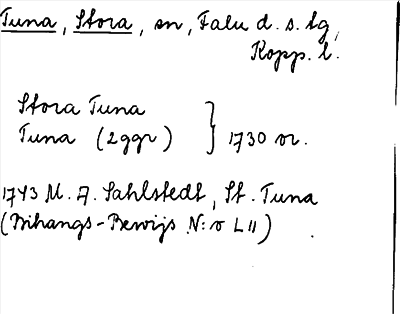 Tuna, Stora, sn, Falu d. s. tg,
Kopp. l.
Stora Tuna
Tuna (2 ggr) } 1730 or.
1743 M. A. Sahlstedt, St. Tuna
(Bihangs-Bewijs N:o L 11)